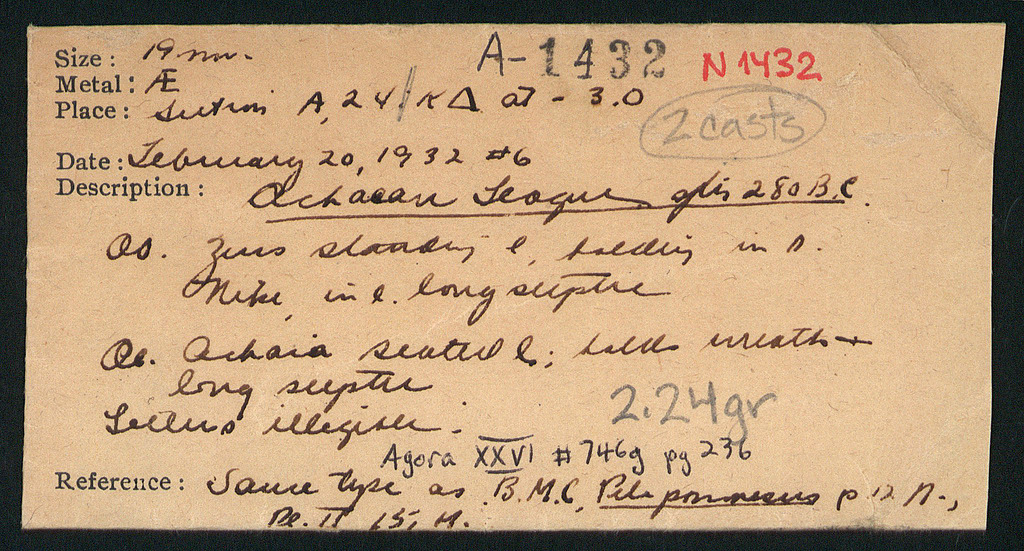 Size : 19 mm.
A-1432
N 1432
Metal : Æ
Place : Section A, 24/ΚΔ at - 3.0
2 casts
Date : February 20, 1932 #6
Description : Achaean League after 280 B.C.
Ob. Zeus standing l, holding in r.
Nike, in l. long sceptre
Re. Achaia seated l; holds wreath +
long sceptre
2.24gr
Letters illegible.
Agora XXVI # 746g pg 236
Reference : Same type as B.M.C, Peloponnesus p 12
Pl. II 15,